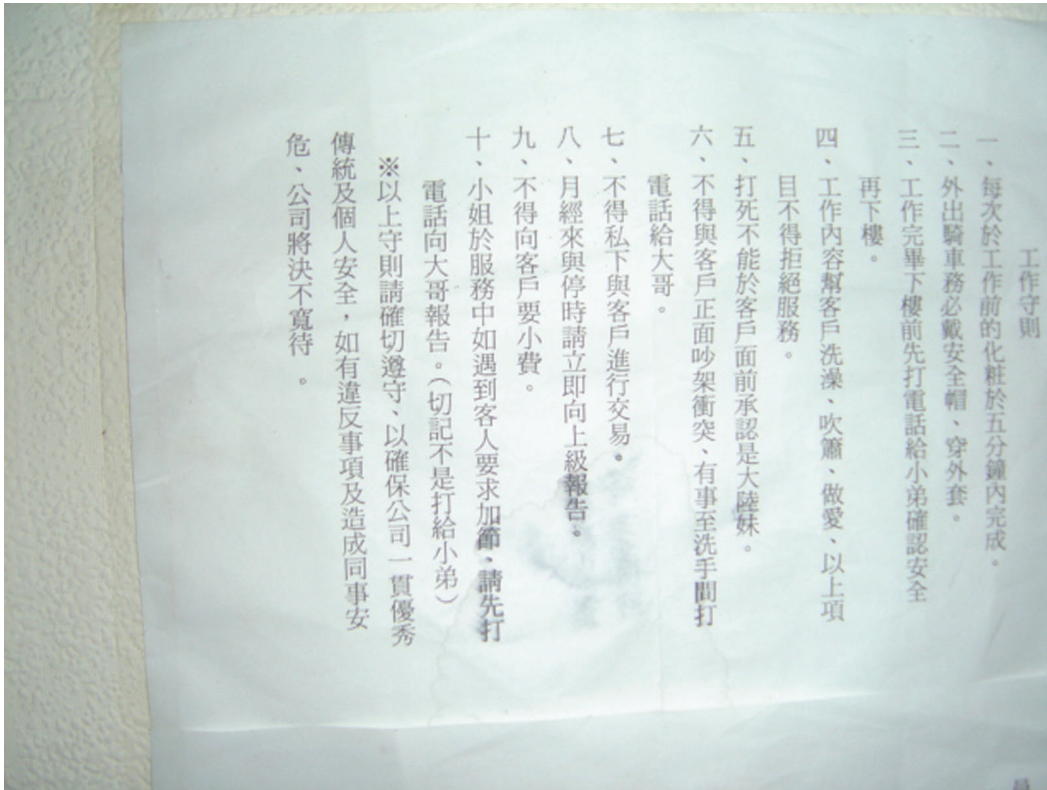 工作守則
一、每次於工作前的化粧於五分鐘內完成。
二、外出騎車務必戴安全帽、穿外套。
三、工作完畢下樓前先打電話給小弟確認安全
再下樓。
四、工作內容幫客戶洗澡、吹簫、做愛、以上項
目不得拒絕服務。
五、打死不能於客戶面前承認是大陸妹。
六、不得與客戶正面吵架衝突、有事至洗手間打
電話給大哥。
七、不得私下與客戶進行交易。
八、月經來與停時請立即向上級報告。
九、不得向客戶要小費。
十、小姐於服務中如遇到客人要求加節、請先打
電話向大哥報告。(切記不是打給小弟)
※以上守則請確切遵守、以確保公司一貫優秀
傳統及個人安全，如有違反事項及造成同事安
危、公司將決不寬待。